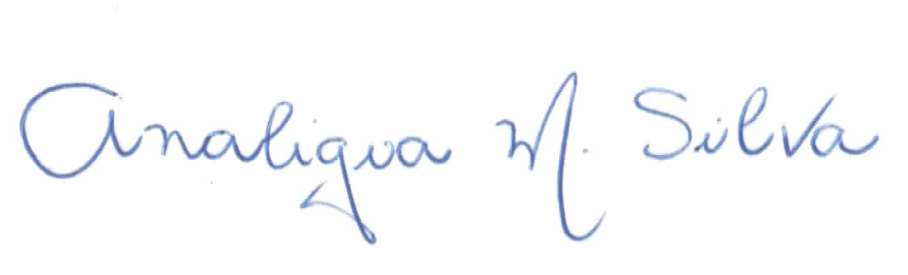 Analigia M. Silva